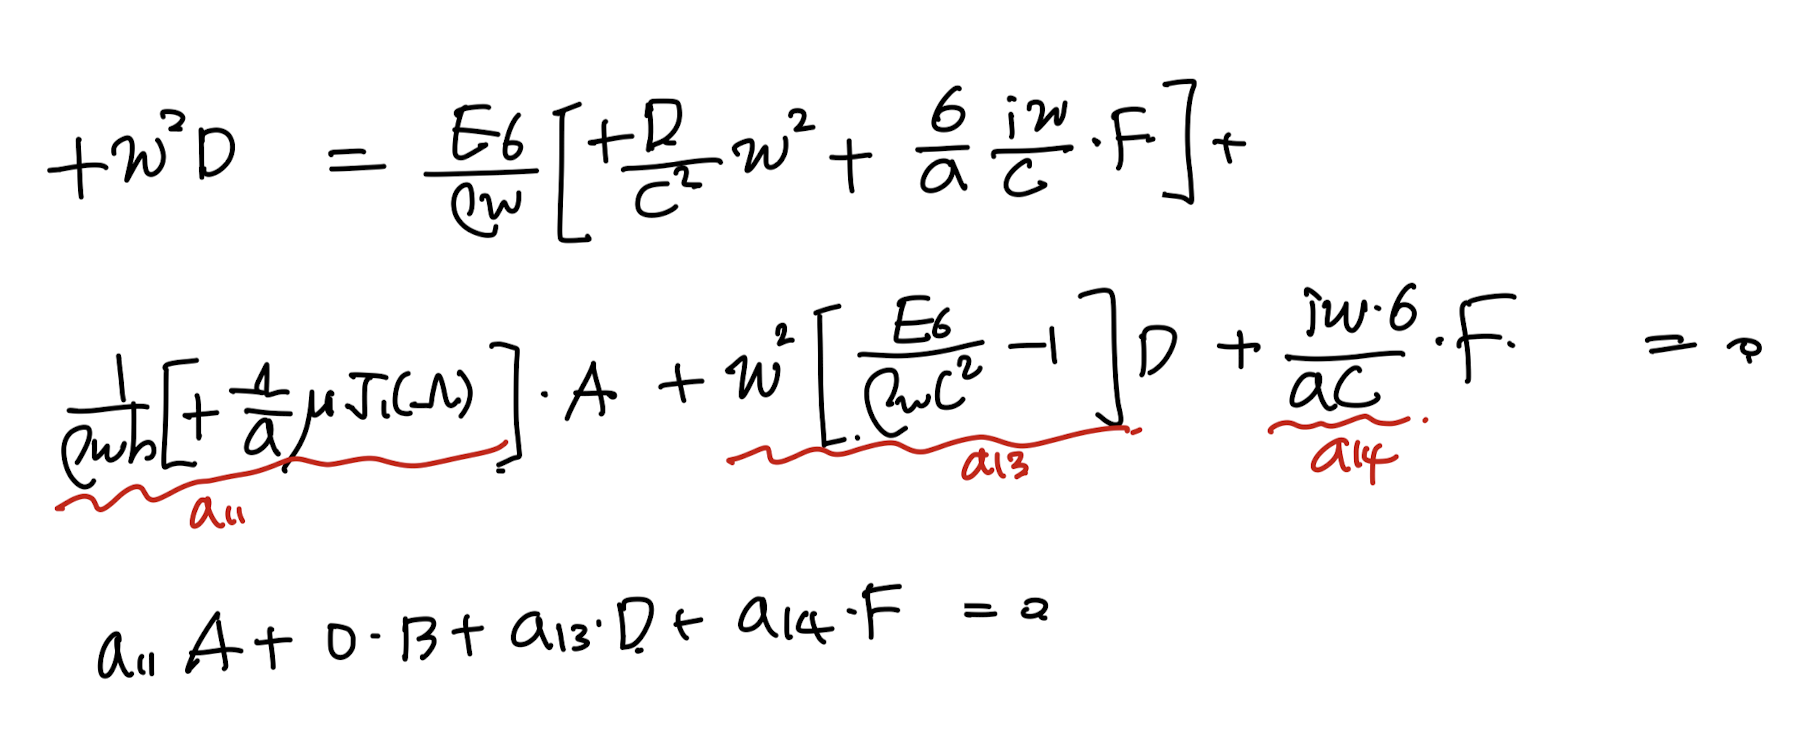 +w²D = E6/ρw [+D/C² w² + 6/a iw/C · F] +
1/ρwh [+ Λ/a μ J₁(Λ)] · A + w² [E6/ρwC² − 1] D + iw·6/aC · F. = 0
a11 a13 a14
a11 A + 0 · B + a13 · D + a14 · F = 0